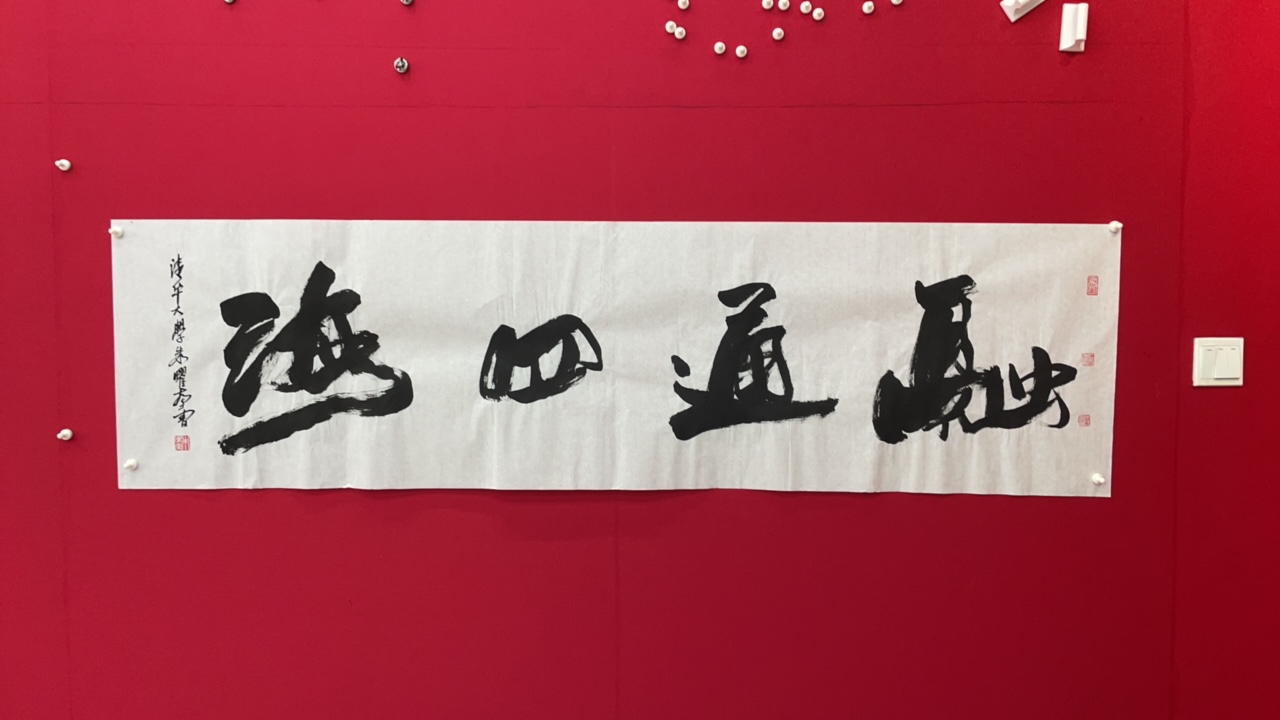 融通四海
清华大學朱曜奎书